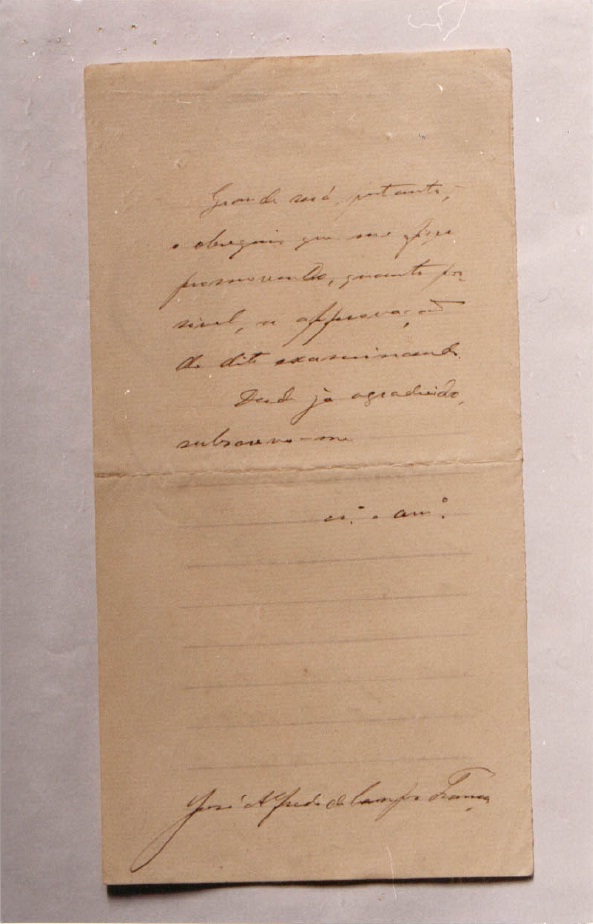 Grande será, portanto,
o obsequio que me faça
promovendo, quanto pos-
sivel, a approvação
do dito examinando.
Desde já agradecido,
subscrevo-me
am.º
José Alfredo de Campos França